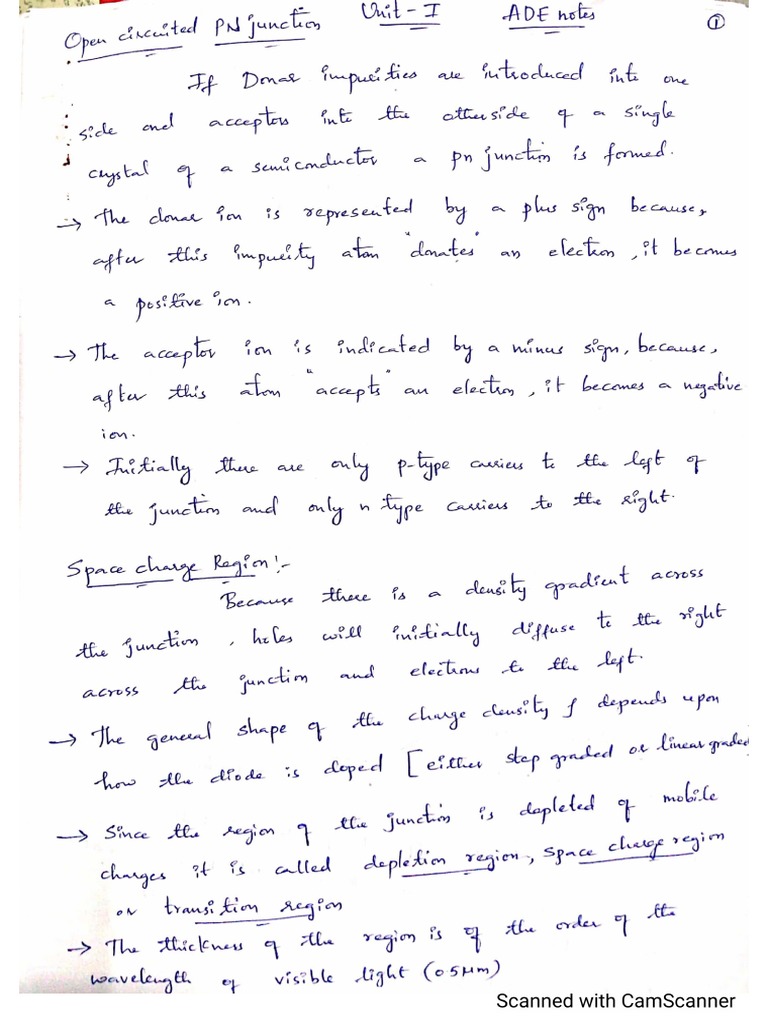 Open circuited PN junction Unit-I ADE notes ①
If Donar impurities are introduced into one
side and acceptors into the otherside of a single
crystal of a semiconductor a pn junction is formed.
→ The donar ion is represented by a plus sign because,
after this impurity atom "donates" an election, it becomes
a positive ion.
→ The acceptor ion is indicated by a minus sign, because,
after this atom "accepts" an election, it becomes a negative
ion.
→ Initially there are only p-type carriers to the left of
the junction and only n type carriers to the right.
Space charge Region:-
Because there is a density gradient across
the junction, holes will initially diffuse to the right
across the junction and elections to the left.
→ The general shape of the charge density ρ depends upon
how the diode is doped [either step graded or linear graded
→ Since the region of the junction is depleted of mobile
charges it is called depletion region, space charge region
or transition region
→ The thickness of the region is of the order of the
wavelength of visible light (0.5μm)
Scanned with CamScanner